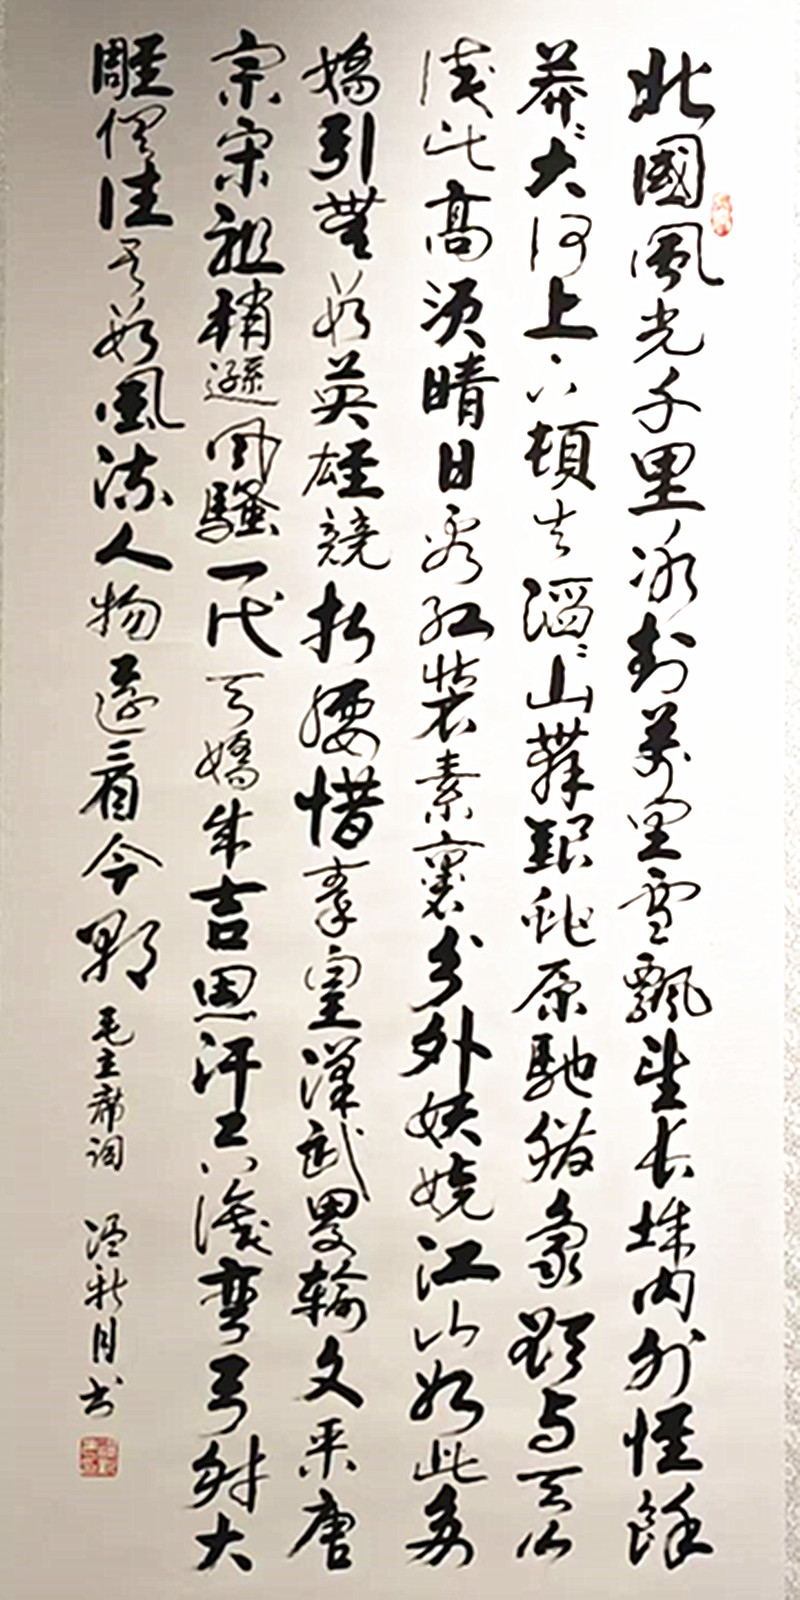 北國風光千里冰封萬里雪飄望长城内外惟餘
莽〻大河上下頓失滔〻山舞銀蛇原馳蠟象欲与天公
試比高须晴日看红装素裹分外妖娆江山如此多
嬌引無数英雄競折腰惜秦皇漢武畧輸文采唐
宗宋祖稍遜风騷一代天嬌成吉思汗只識彎弓射大
雕俱往矣数風流人物還看今朝
毛主席词
月书